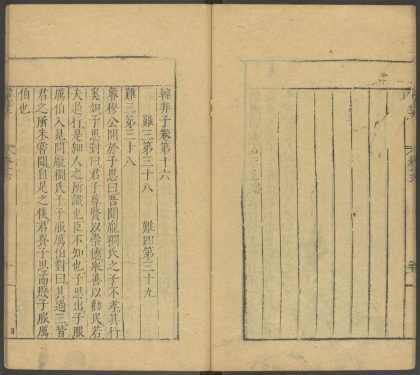 韓非子卷第十六
難三第三十八 難四第三十九
難三第三十八
魯穆公問於子思曰吾聞龐𤡑氏之子不孝其行
奚如子思對曰君子尊賢以崇德舉善以勸民若
夫過行是細人之所識也臣不知也子思出子服
厲伯入見問龐𤡑氏子子服厲伯對曰其過三皆
君之所未嘗聞自是之後君貴子思而賤子服厲
伯也
8